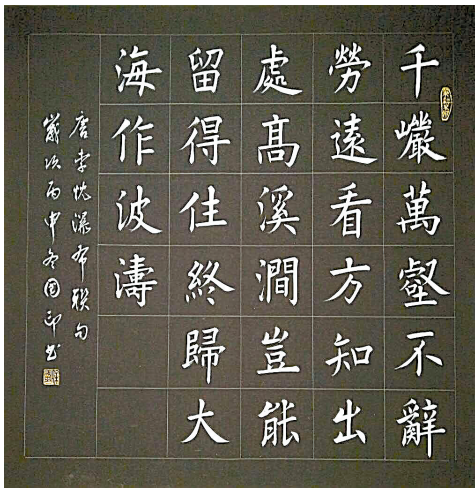 千巖萬壑不辭
勞遠看方知出
處髙溪澗豈能
留得住終歸大
海作波濤
唐李忱瀑布聯句
歲次丙申冬國印書